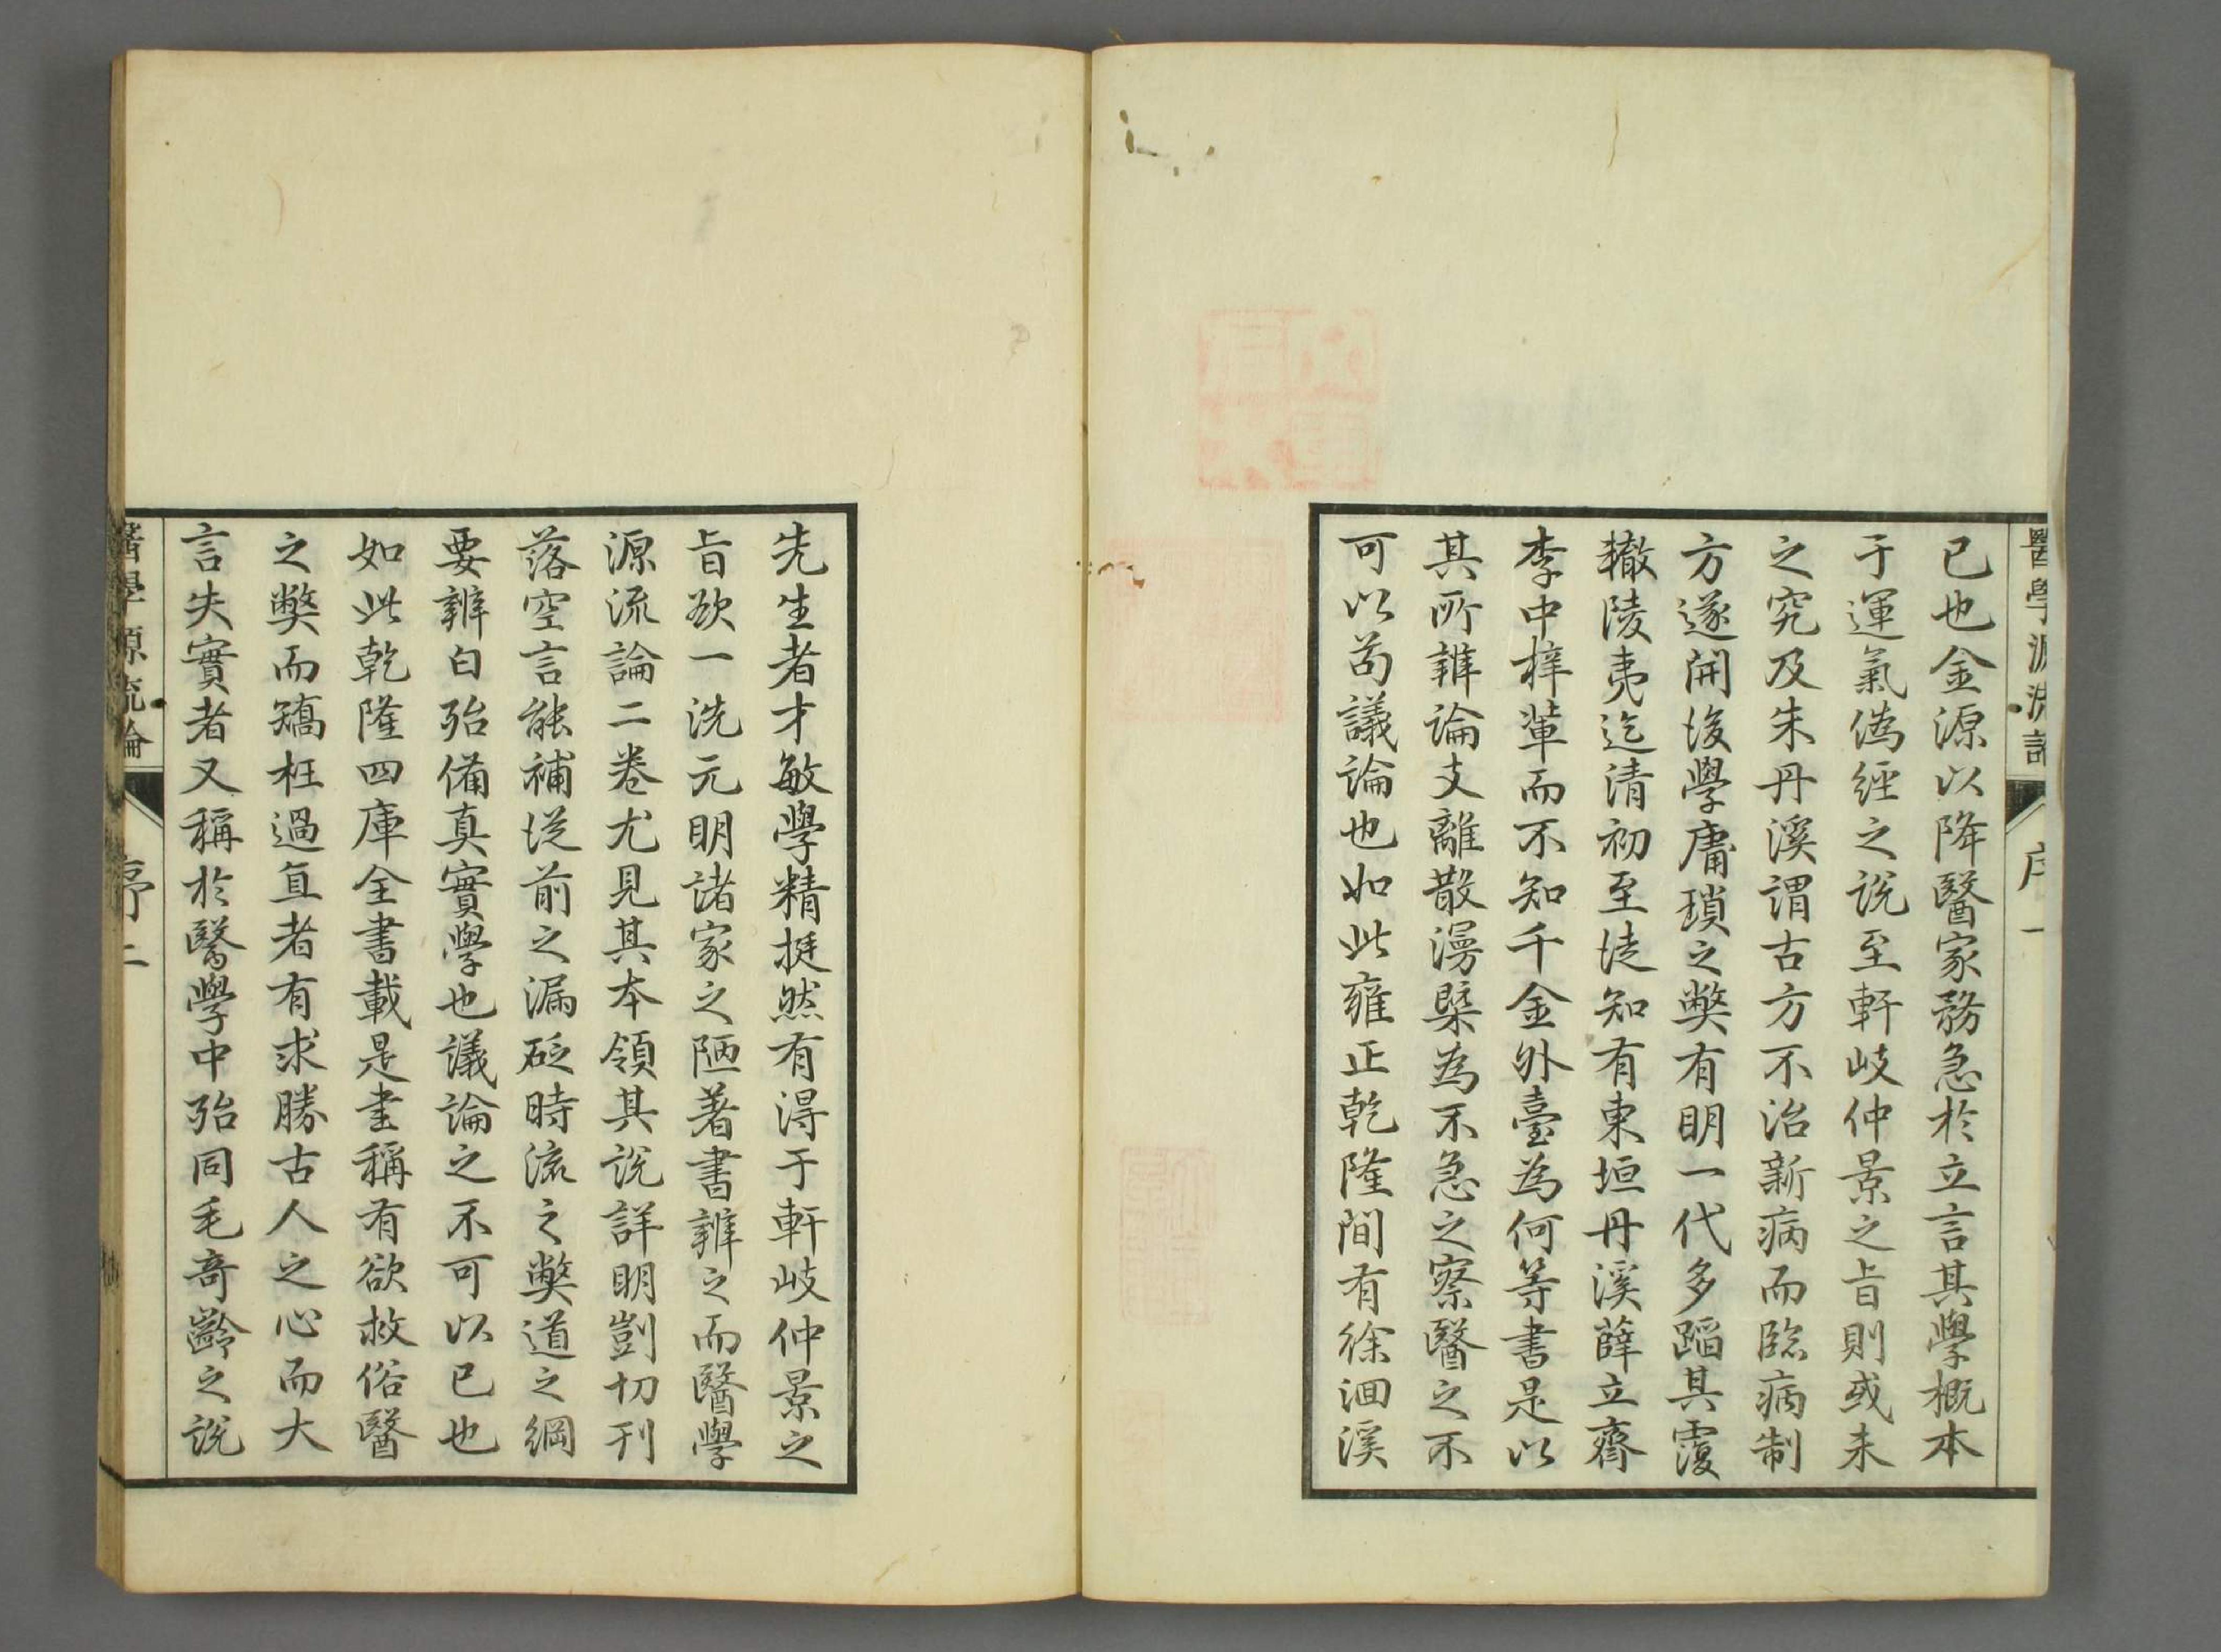 醫學源流論
序一
已也金源以降醫家務急於立言其學概本
于運氣僞經之說至軒岐仲景之旨則或未
之究及朱丹溪謂古方不治新病而臨病制
方遂開後學庸瑣之弊有明一代多蹈其覆
轍陵夷迄清初至徒知有東垣丹溪薛立齋
李中梓輩而不知千金外臺為何等書是以
其所辨論支離散漫槩為不急之察醫之不
可以苟議論也如此雍正乾隆間有徐洄溪
先生者才敏學精挺然有得于軒岐仲景之
旨欲一洗元明諸家之陋著書辨之而醫學
源流論二卷尤見其本領其說詳明剴切刊
落空言能補從前之漏砭時流之弊道之綱
要辨白殆備真實學也議論之不可以已也
如此乾隆四庫全書載是書稱有欲救俗醫
之弊而矯枉過直者有求勝古人之心而大
言失實者又稱於醫學中殆同毛奇齡之說
醫學源流論
序二